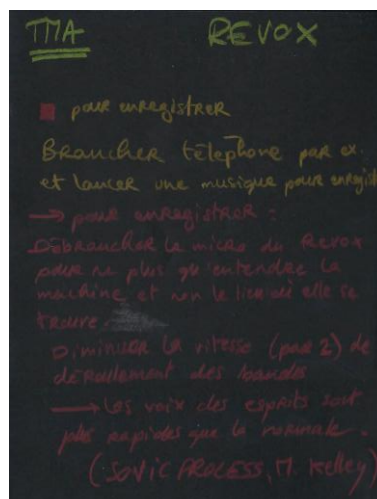 TMA REVOX
pour enregistrer
Brancher téléphone par ex.
et lancer une musique pour enregist
→ pour enregistrer :
Débrancher le micro du Revox
pour ne plus qu'entendre la
machine et non le lieu où elle se
trouve.
Diminuer la vitesse (par 2) de
déroulement des bandes
→ Les voix des esprits sont
plus rapides que la normale.
(SOVIC PROCESS, M. Kelley)